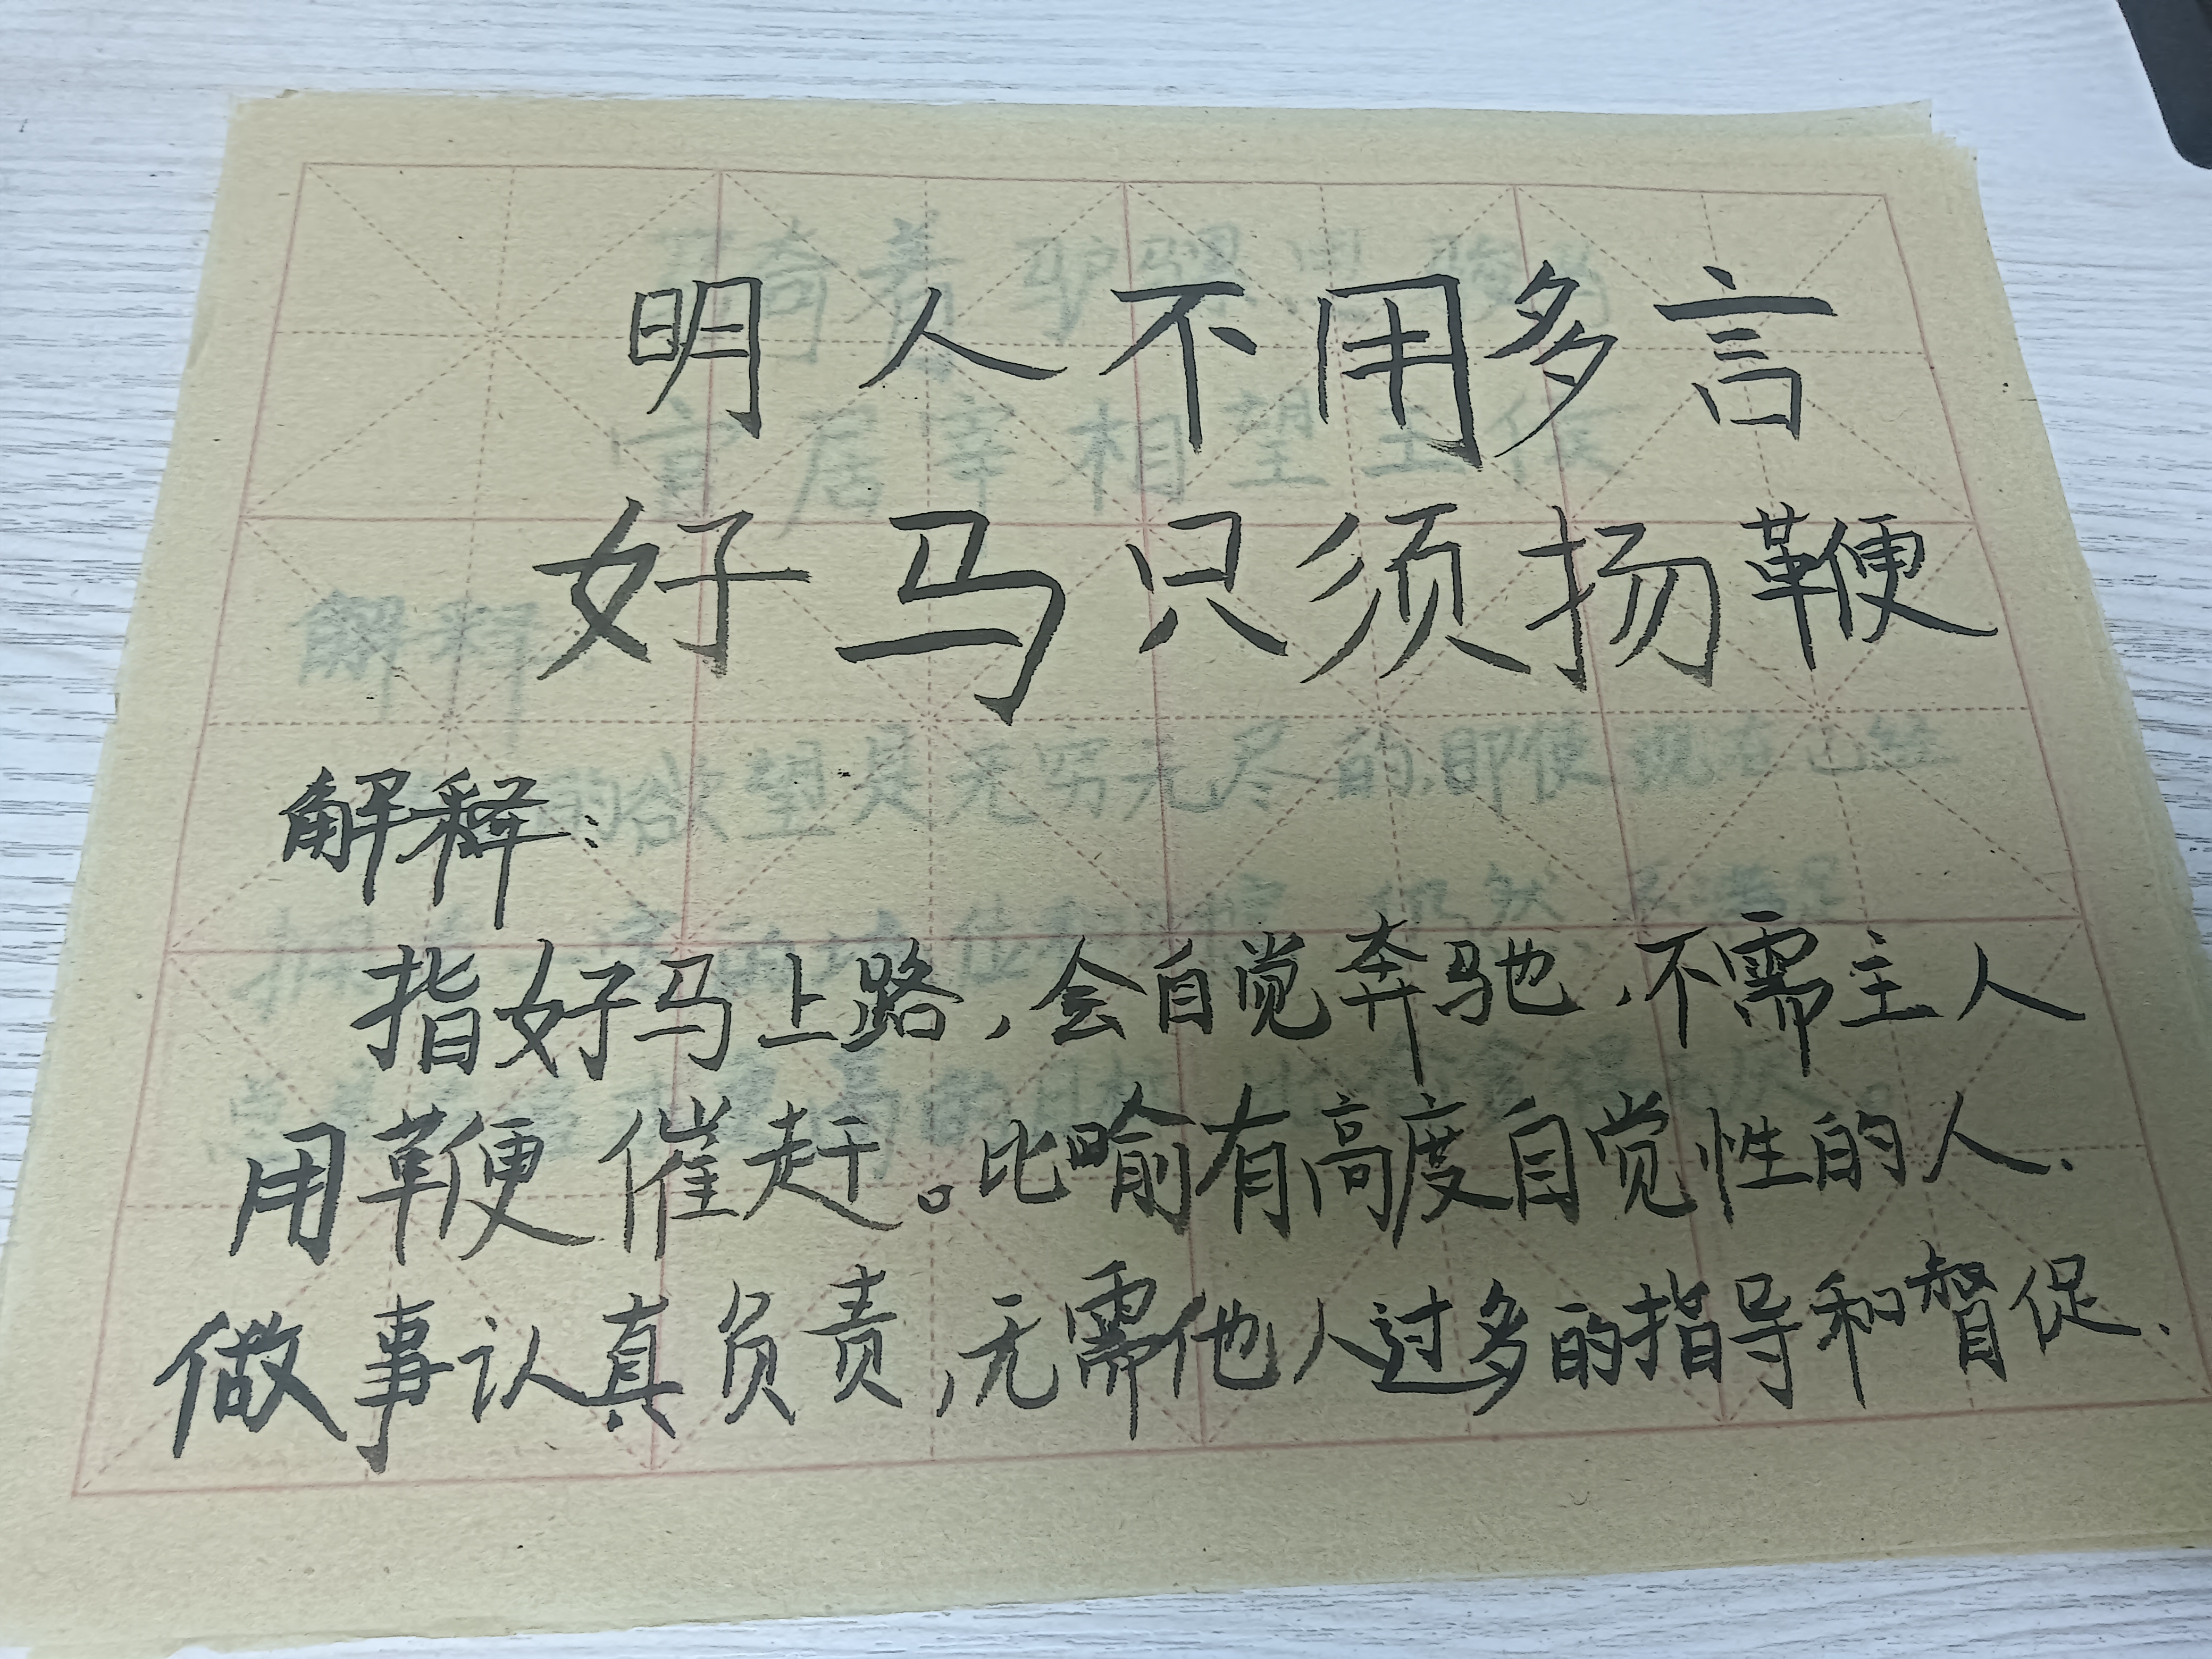 明人不用多言
好马只须扬鞭
解释:
指好马上路,会自觉奔驰,不需主人
用鞭催赶。比喻有高度自觉性的人.
做事认真负责,无需他人过多的指导和督促.